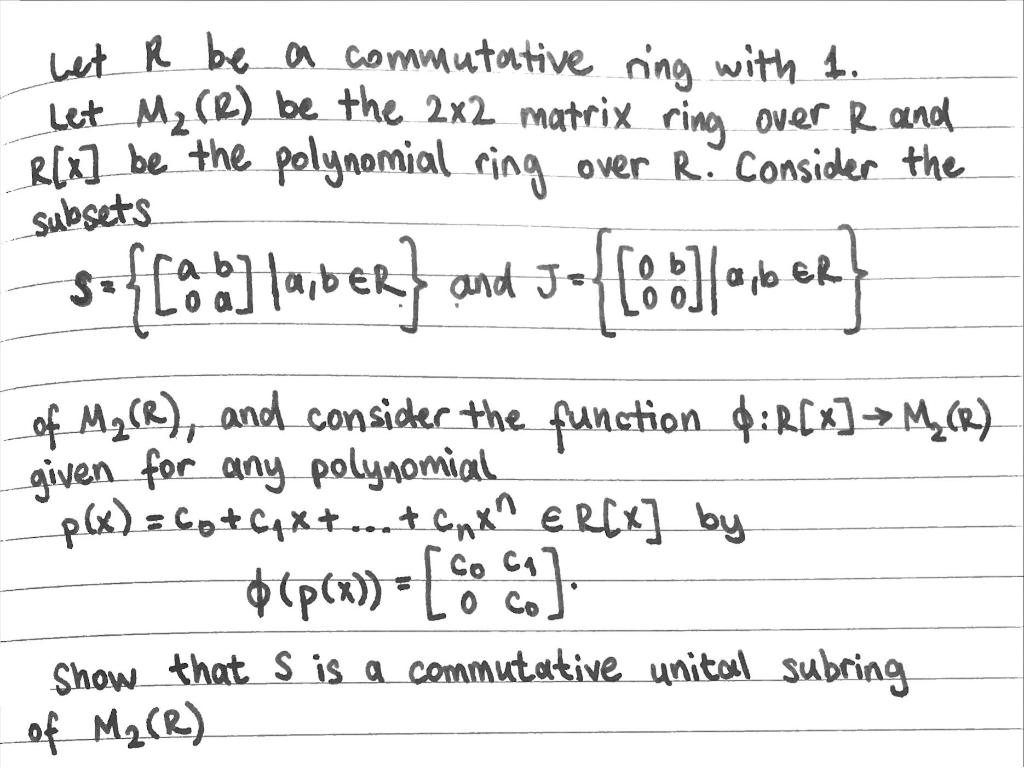 Let R be a commutative ring with 1.
Let M₂(R) be the 2x2 matrix ring over R and
R[x] be the polynomial ring over R. Consider the
subsets
S = {[a b; 0 a] | a,b ∈ R} and J = {[0 b; 0 0] | a,b ∈ R}
of M₂(R), and consider the function ϕ: R[x] → M₂(R)
given for any polynomial
p(x) = c₀ + c₁x + ... + cₙxⁿ ∈ R[x] by
ϕ(p(x)) = [c₀ c₁; 0 c₀].
Show that S is a commutative unital subring
of M₂(R)